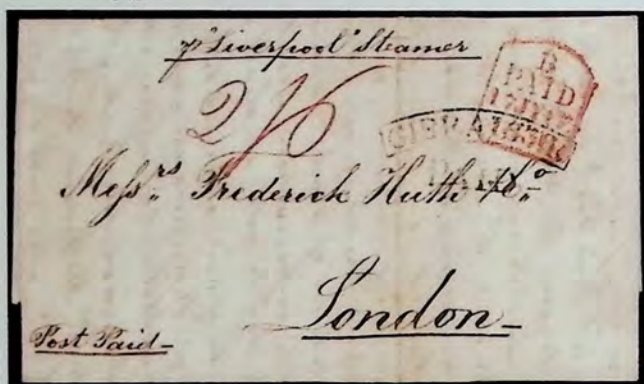 p "Liverpool" Steamer
B
PAID
1838
2/6
GIBRA
PAID
Messrs. Frederick Huth & Co.
London
Post Paid